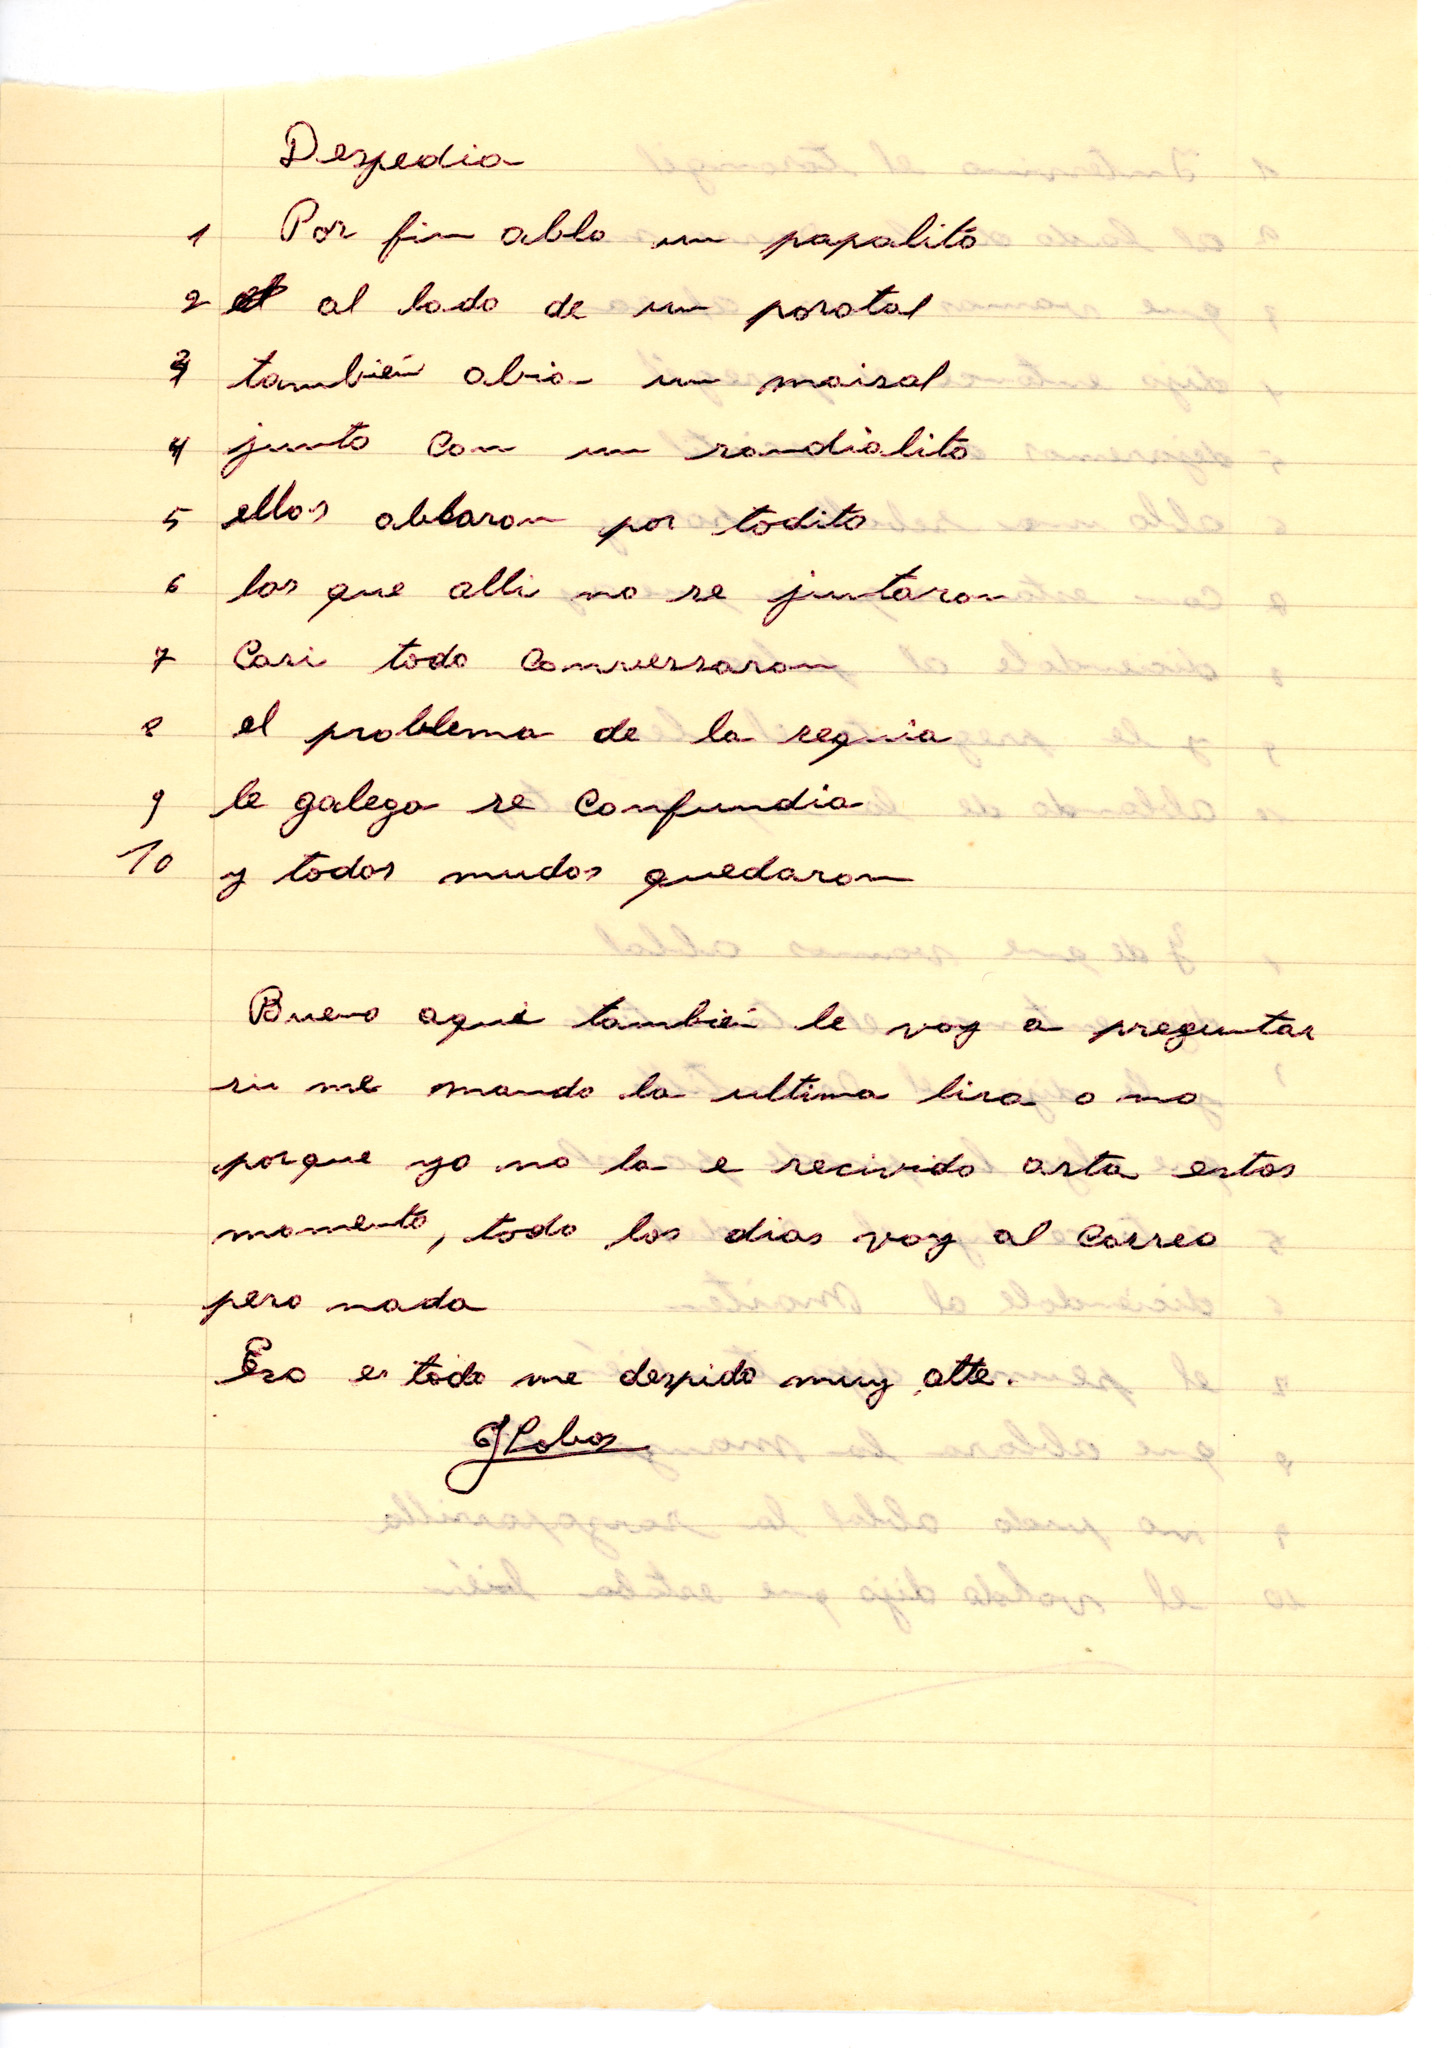 Despedia
1 Por fin ablo un papalito
2 al lado de un porotal
3 también abia un maisal
4 junto con un sandialito
5 ellos ablaron por todito
6 los que alli no se juntaron
7 Casi todo Conversaron
8 el problema de la sequia
9 le galega se Confundia
10 y todos mudos quedaron
Bueno aqui también le voy a preguntar
si me mando la ultima lira o no
porque yo no la e recivido asta estos
momento, todo los dias voy al Correo
pero nada
Eso es todo me despido muy atte.
JLobos